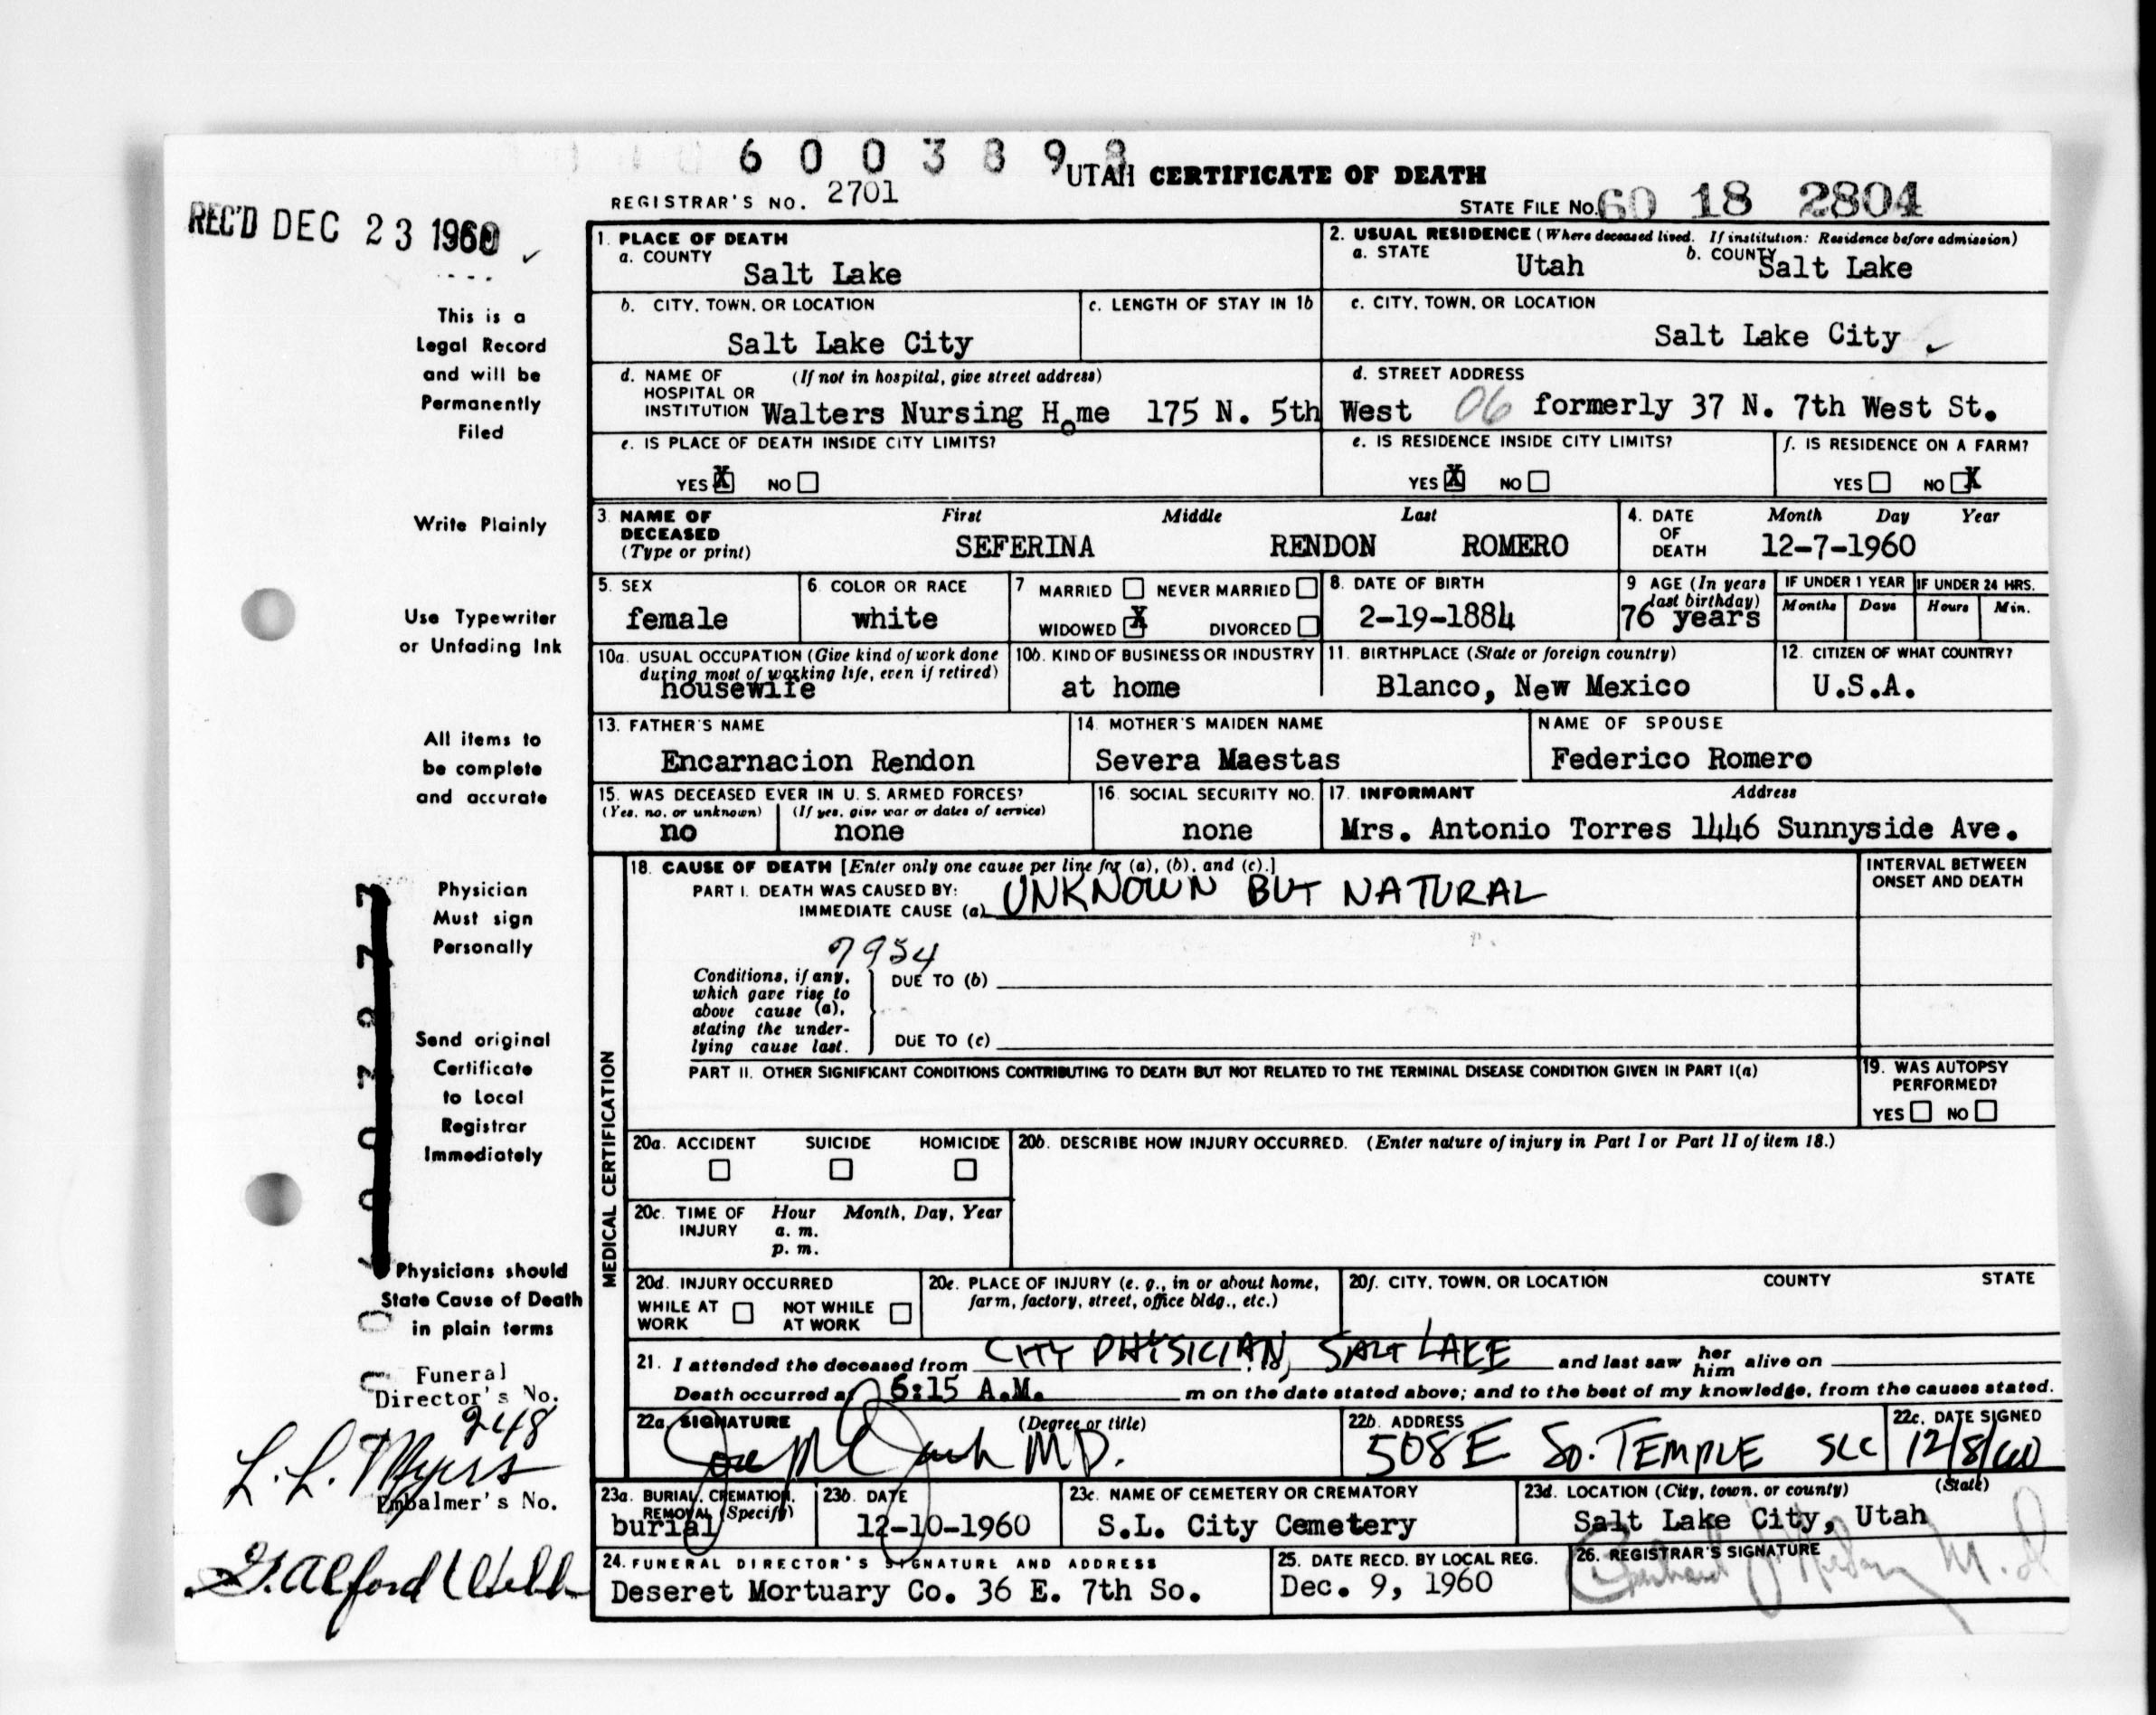 6 0 0 3 8 9 8
UTAH CERTIFICATE OF DEATH
REGISTRAR'S NO. 2701
STATE FILE NO. 60 18 2804
REC'D DEC 23 1960
This is a
Legal Record
and will be
Permanently
Filed
Write Plainly
Use Typewriter
or Unfading Ink
All items to
be complete
and accurate
Physician
Must sign
Personally
Send original
Certificate
to Local
Registrar
Immediately
Physicians should
State Cause of Death
in plain terms
Funeral
Director's No.
248
L. L. Myers
Embalmer's No.
1. PLACE OF DEATH
a. COUNTY
Salt Lake
2. USUAL RESIDENCE (Where deceased lived. If institution: Residence before admission)
a. STATE Utah b. COUNTY Salt Lake
b. CITY, TOWN, OR LOCATION
Salt Lake City
c. LENGTH OF STAY IN 1b
c. CITY, TOWN, OR LOCATION
Salt Lake City
d. NAME OF (If not in hospital, give street address)
HOSPITAL OR
INSTITUTION Walters Nursing Home 175 N. 5th West
d. STREET ADDRESS
06 formerly 37 N. 7th West St.
e. IS PLACE OF DEATH INSIDE CITY LIMITS?
YES X NO
e. IS RESIDENCE INSIDE CITY LIMITS?
YES X NO
f. IS RESIDENCE ON A FARM?
YES NO X
3. NAME OF DECEASED (Type or print)
First Middle Last
SEFERINA RENDON ROMERO
4. DATE OF DEATH
Month Day Year
12-7-1960
5. SEX
female
6. COLOR OR RACE
white
7 MARRIED NEVER MARRIED
WIDOWED X DIVORCED
8. DATE OF BIRTH
2-19-1884
9 AGE (In years last birthday)
76 years
IF UNDER 1 YEAR
Months Days
IF UNDER 24 HRS.
Hours Min.
10a. USUAL OCCUPATION (Give kind of work done during most of working life, even if retired)
housewife
10b. KIND OF BUSINESS OR INDUSTRY
at home
11. BIRTHPLACE (State or foreign country)
Blanco, New Mexico
12. CITIZEN OF WHAT COUNTRY?
U.S.A.
13. FATHER'S NAME
Encarnacion Rendon
14. MOTHER'S MAIDEN NAME
Severa Maestas
NAME OF SPOUSE
Federico Romero
15. WAS DECEASED EVER IN U. S. ARMED FORCES?
(Yes, no, or unknown) (If yes, give war or dates of service)
no none
16. SOCIAL SECURITY NO.
none
17. INFORMANT Address
Mrs. Antonio Torres 1446 Sunnyside Ave.
MEDICAL CERTIFICATION
18. CAUSE OF DEATH [Enter only one cause per line for (a), (b), and (c).]
PART I. DEATH WAS CAUSED BY:
IMMEDIATE CAUSE (a) UNKNOWN BUT NATURAL
INTERVAL BETWEEN
ONSET AND DEATH
7954
Conditions, if any,
which gave rise to
above cause (a),
stating the under-
lying cause last.
DUE TO (b)
DUE TO (c)
PART II. OTHER SIGNIFICANT CONDITIONS CONTRIBUTING TO DEATH BUT NOT RELATED TO THE TERMINAL DISEASE CONDITION GIVEN IN PART I(a)
19. WAS AUTOPSY
PERFORMED?
YES NO
20a. ACCIDENT SUICIDE HOMICIDE
20b. DESCRIBE HOW INJURY OCCURRED. (Enter nature of injury in Part I or Part II of item 18.)
20c. TIME OF INJURY
Hour Month, Day, Year
a. m.
p. m.
20d. INJURY OCCURRED
WHILE AT WORK NOT WHILE AT WORK
20e. PLACE OF INJURY (e. g., in or about home,
farm, factory, street, office bldg., etc.)
20f. CITY, TOWN, OR LOCATION COUNTY STATE
21. I attended the deceased from CITY PHYSICIAN, SALT LAKE and last saw her him alive on
Death occurred at 6:15 A.M. m on the date stated above; and to the best of my knowledge, from the causes stated.
22a. SIGNATURE (Degree or title)
M.D.
22b. ADDRESS
508 E So. TEMPLE SLC
22c. DATE SIGNED
12/8/60
23a. BURIAL, CREMATION, REMOVAL (Specify)
burial
23b. DATE
12-10-1960
23c. NAME OF CEMETERY OR CREMATORY
S.L. City Cemetery
23d. LOCATION (City, town, or county) (State)
Salt Lake City, Utah
24. FUNERAL DIRECTOR'S SIGNATURE AND ADDRESS
Deseret Mortuary Co. 36 E. 7th So.
25. DATE RECD. BY LOCAL REG.
Dec. 9, 1960
26. REGISTRAR'S SIGNATURE